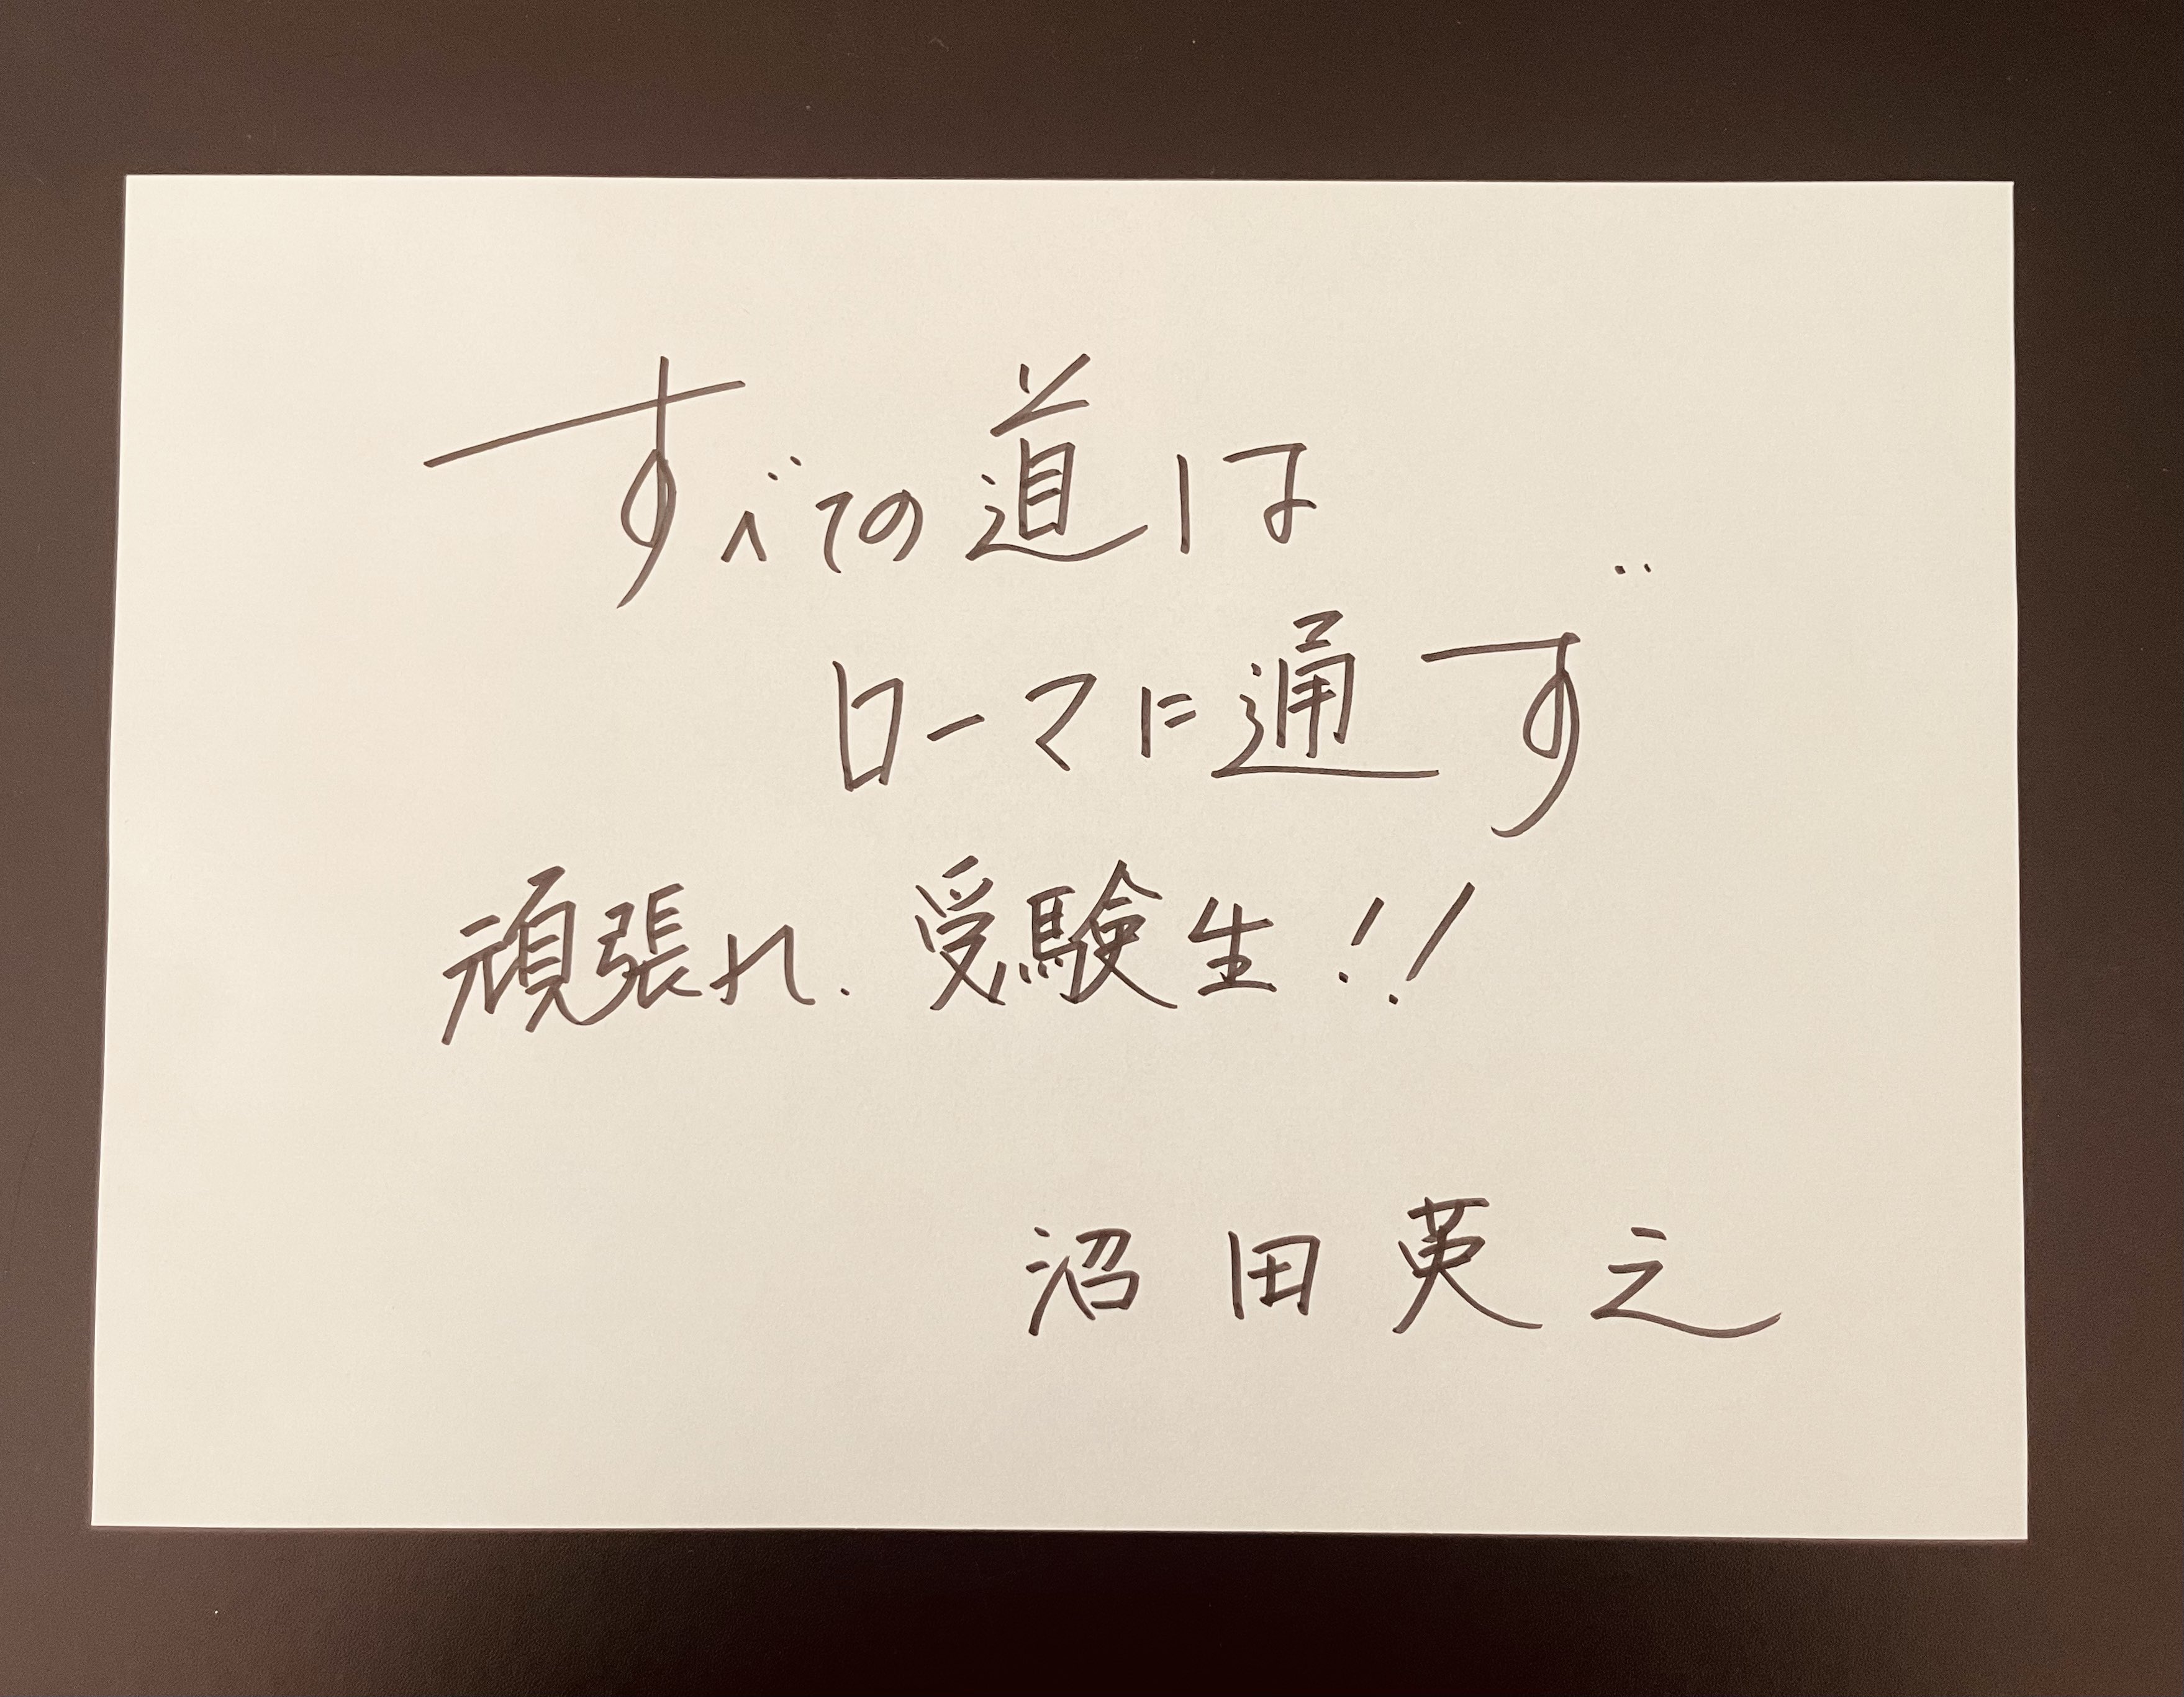 すべての道は
ローマに通ず
頑張れ、受験生!!
沼田英之